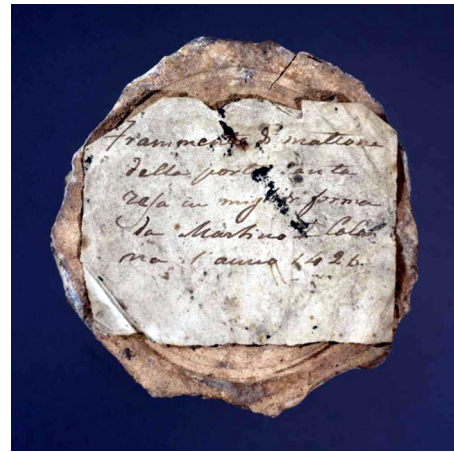 Frammento di mattone
della porta santa
resa in miglior forma
da Martino V Colon
na l'anno 1426